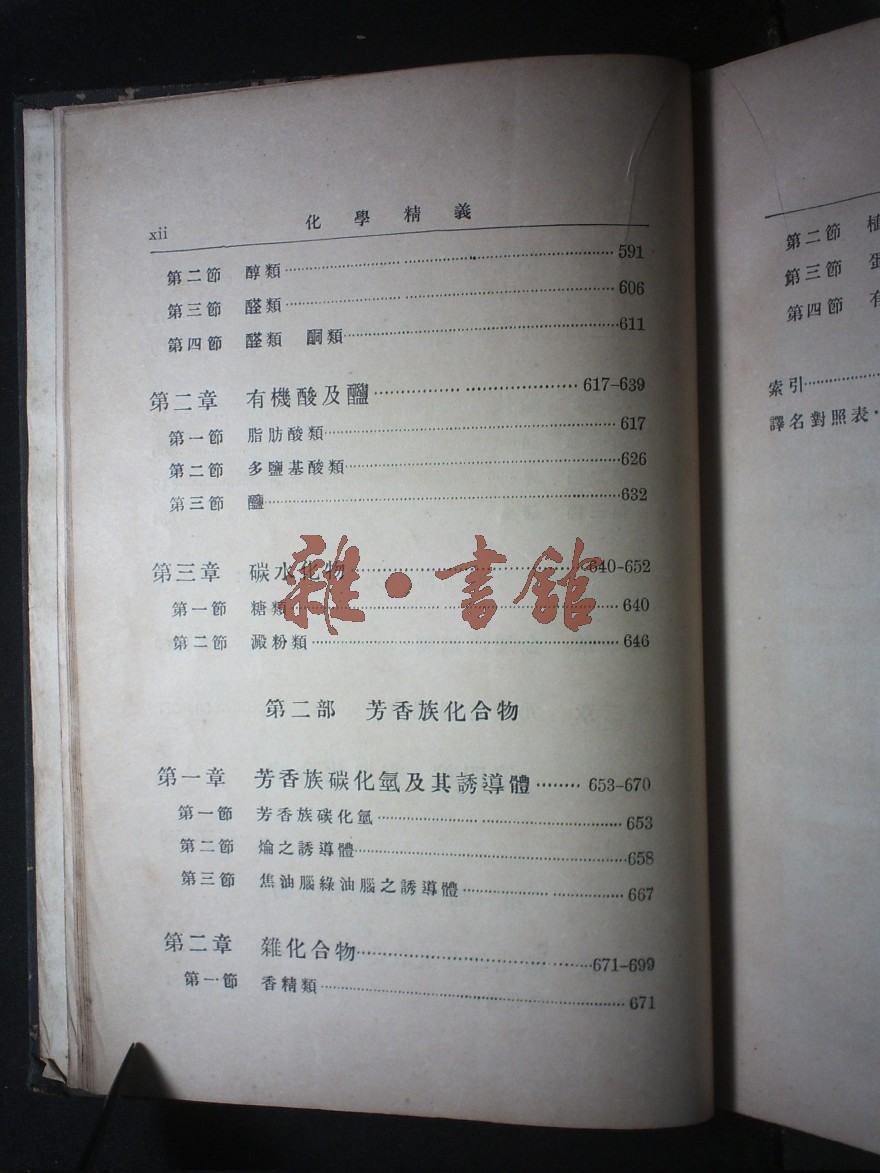 xii 化學精義
第二節 醇類 591
第三節 醛類 606
第四節 醛類 酮類 611
第二章 有機酸及 617–639
第一節 脂肪酸類 617
第二節 多鹽基酸類 626
第三節 632
第三章 碳水化物 640–652
第一節 糖類 640
第二節 澱粉類 646
第二部 芳香族化合物
第一章 芳香族碳化氫及其誘導體 653–670
第一節 芳香族碳化氫 653
第二節 之誘導體 658
第三節 焦油腦綠油腦之誘導體 667
第二章 雜化合物 671–699
第一節 香精類 671
雜·書館
第二節
第三節
第四節
索引
譯名對照表